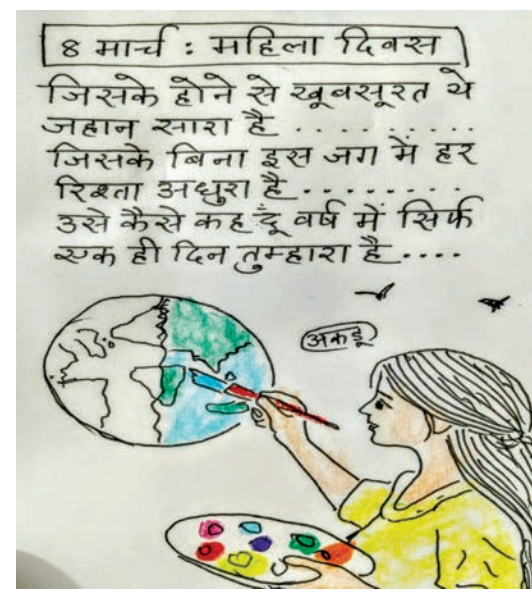 8 मार्च : महिला दिवस
जिसके होने से खूवसूरत ये
जहान सारा है . . . . . . . . . .
जिसके बिना इस जग में हर
रिश्ता अधुरा है . . . . . . . .
उसे कैसे कह दूँ वर्ष में सिर्फ
एक ही दिन तुम्हारा है ....
अकडू